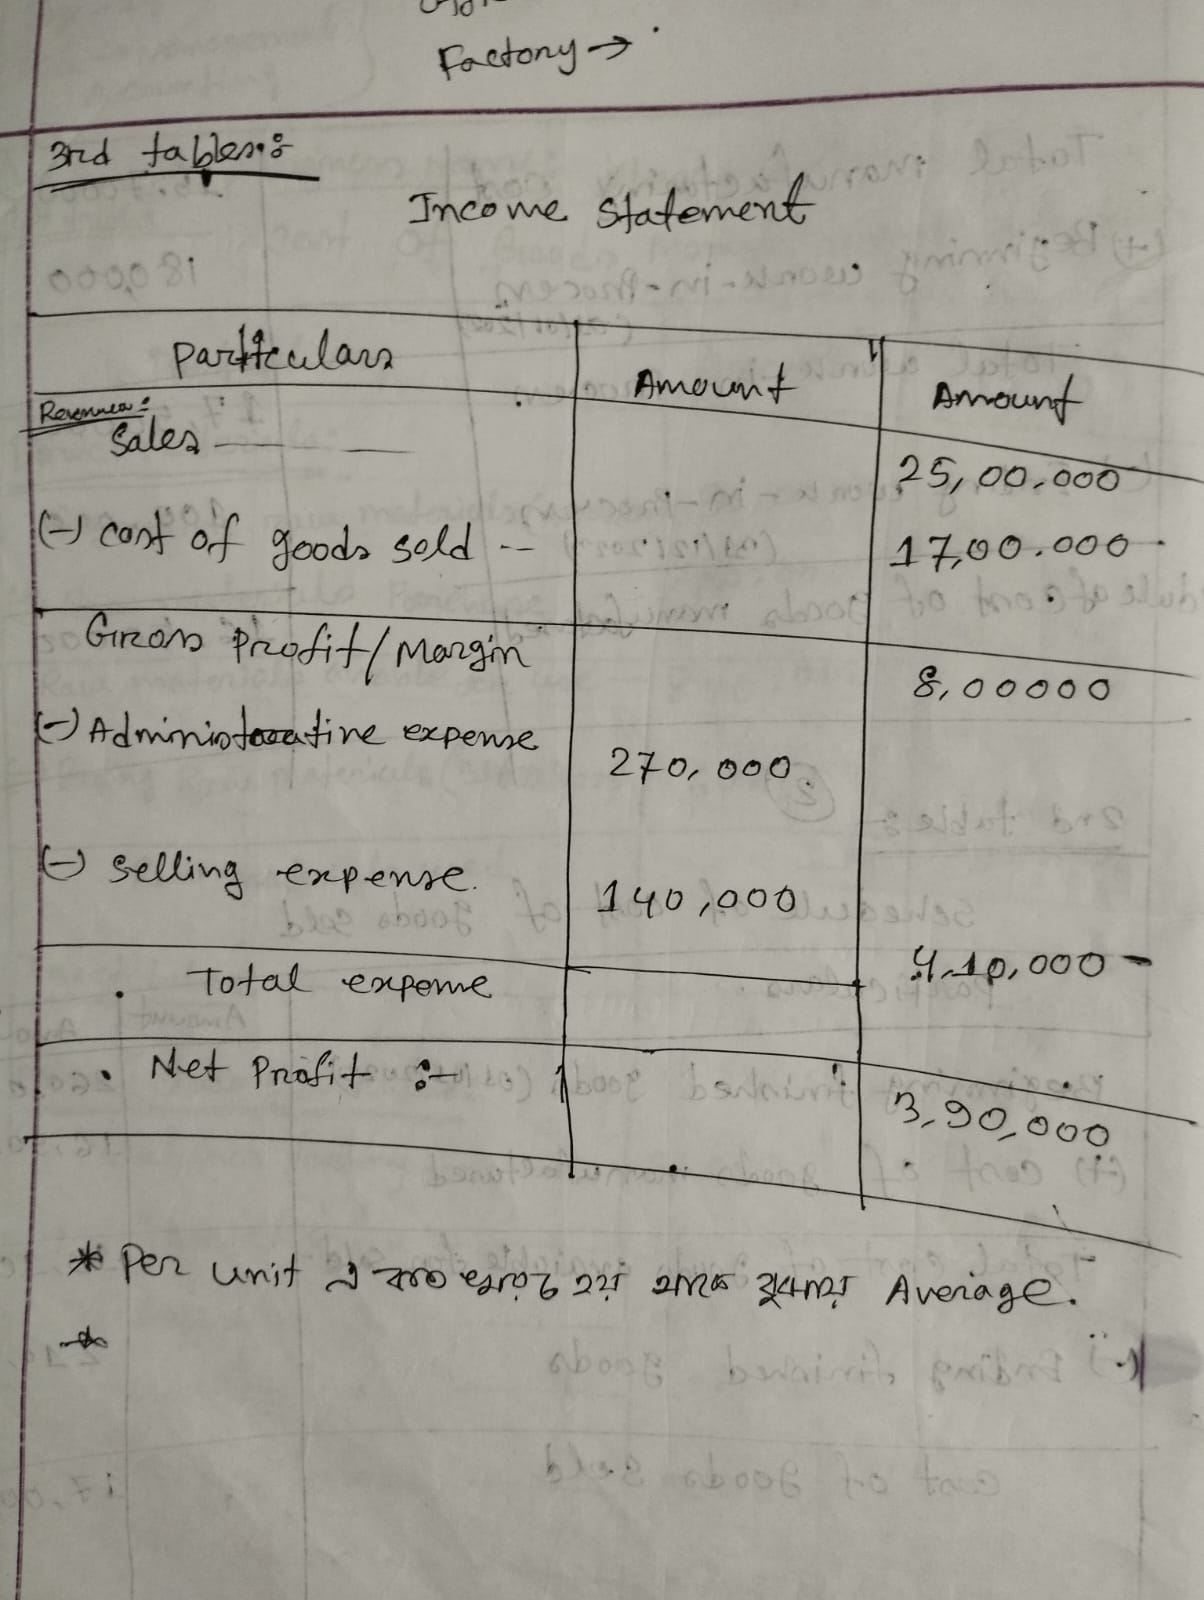 Factory →
3rd tables:
Income Statement
Particulars Amount Amount
Revenues:
Sales 25,00,000
(-) cost of goods sold -- 17,00,000
Gross Profit/Margin 8,00000
(-) Administrative expense 270,000
(-) Selling expense. 140,000
Total expense 4,10,000 -
Net Profit :- 3,90,000
* Per unit এ কত খরচ হয় তাকে বুঝায় Average.
*